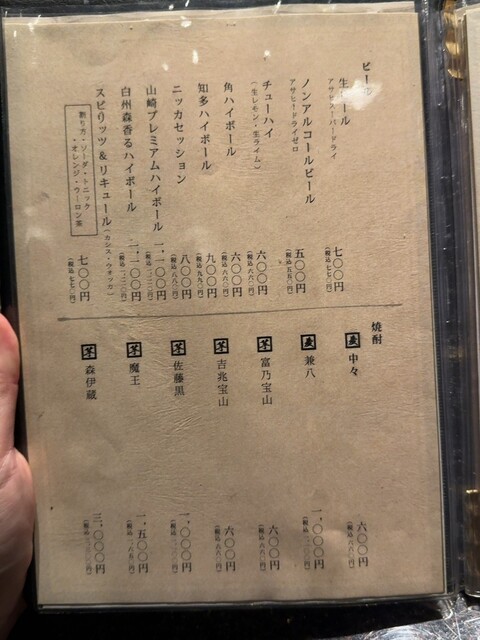 ビール
生ビール 七〇〇円
アサヒスーパードライ (税込 七七〇円)
ノンアルコールビール 五〇〇円
アサヒドライゼロ (税込 五五〇円)
チューハイ 六〇〇円
(生レモン・生ライム) (税込 六六〇円)
角ハイボール 六〇〇円
(税込 六六〇円)
知多ハイボール 九〇〇円
(税込 九九〇円)
ニッカセッション 八〇〇円
(税込 八八〇円)
山崎プレミアムハイボール 一、一〇〇円
(税込 一、二一〇円)
白州森香るハイボール 一、一〇〇円
(税込 一、二一〇円)
スピリッツ&リキュール(カシス・ウオッカ) 七〇〇円
(税込 七七〇円)
割り方・ソーダ・トニック
・オレンジ・ウーロン茶
焼酎
麦 中々 六〇〇円
(税込 六六〇円)
麦 兼八 一、〇〇〇円
(税込 一、一〇〇円)
芋 富乃宝山 六〇〇円
(税込 六六〇円)
芋 吉兆宝山 六〇〇円
(税込 六六〇円)
芋 佐藤黒 一、〇〇〇円
(税込 一、一〇〇円)
芋 魔王 一、五〇〇円
(税込 一、六五〇円)
芋 森伊蔵 三、〇〇〇円
(税込 三、三〇〇円)